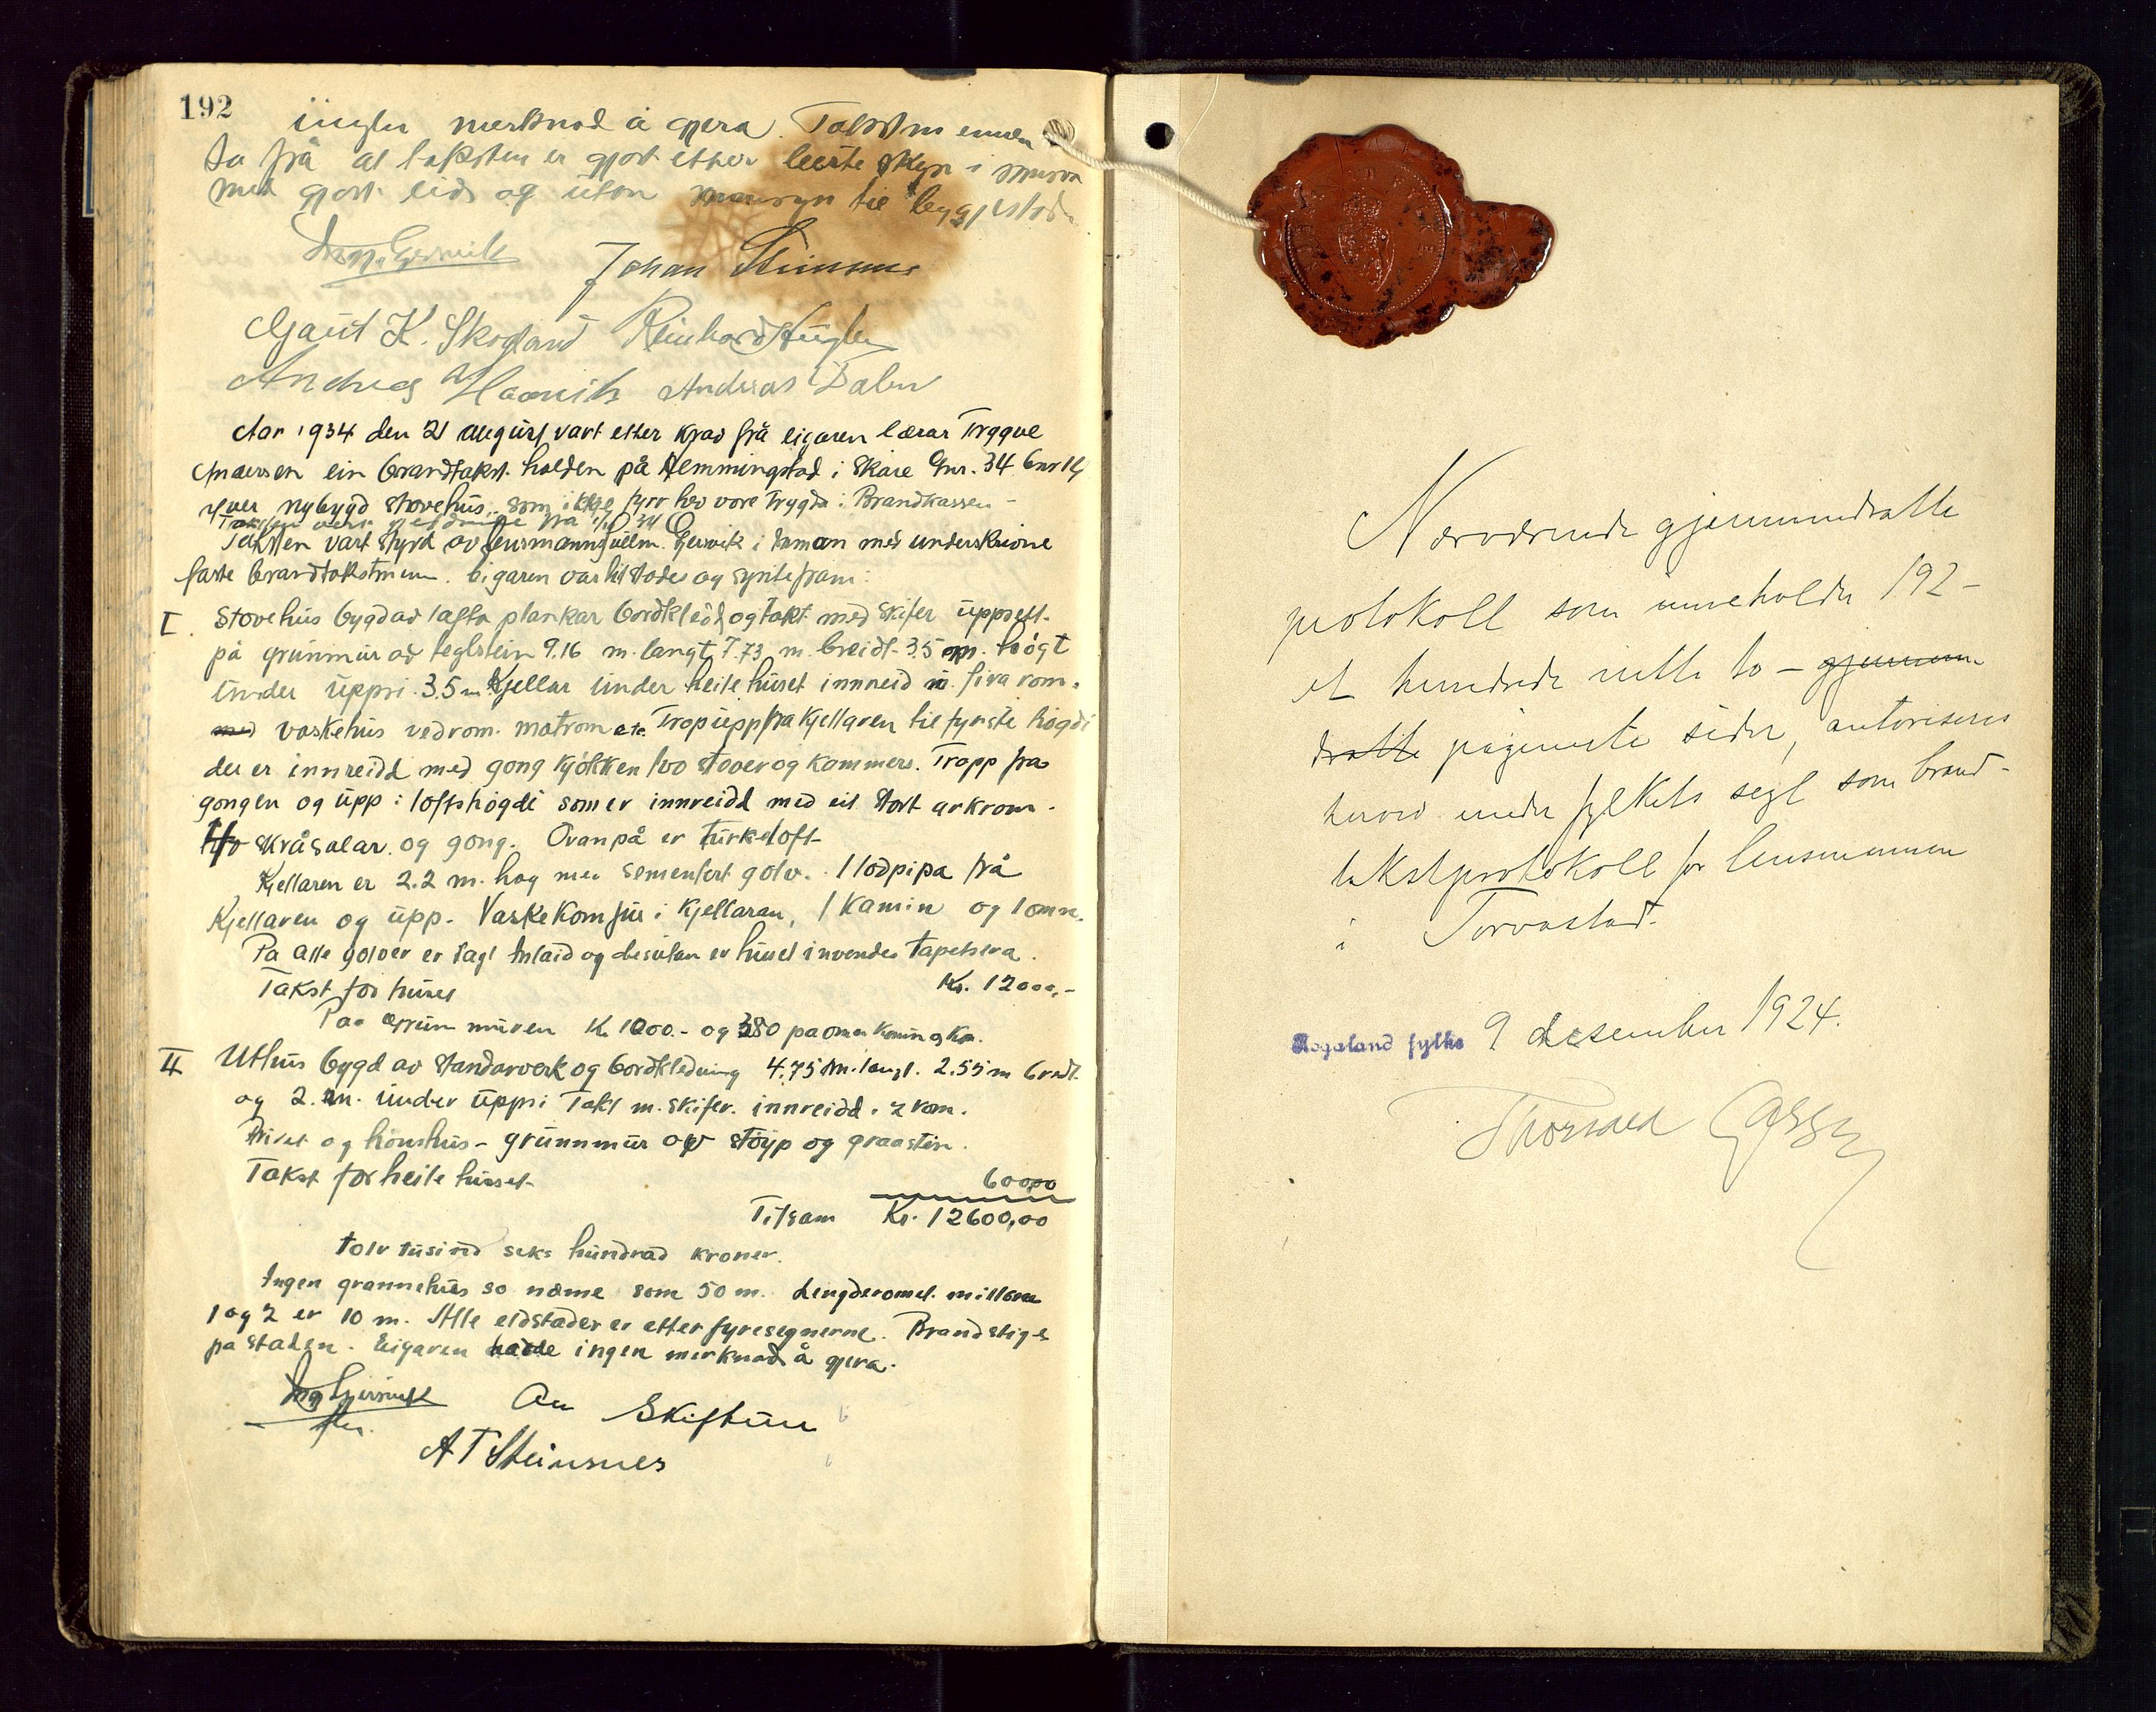 192
merknad å gjera. Takstmennen
ta frå at taksten er gjort etter beste skyn i samsvar
med gjort eid og utan umsyn til byggjestad.
Johan Steinsnes
Gaut K. Skogland Reinhard
Andreas Haavik Andreas Dalen
Aar 1934 den 21 august vart etter krav frå eigaren lærar Trygve
ein brandtakst holden på Hemmingstad i Skåre Gnr. 34 bnr 14
yver nybygd stovehus, som ikkje fyrr hev vore trygda i Brandkassen -
Taksten vart styrd av lensmannsfullm. Gjersvik i saman med underskrivne
faste brandtakstmenn. Eigaren var tilstades og synte fram:
I. Stovehus bygd av lafta plankar bordkledd og takt med skifer uppsett
på grunnmur av teglstein 9.16 m. langt, 7.73 m. breidt 3.5 m. högt
under uppsi. 3.5 m Kjellar under heile huset innreid m. fira rom.
med vaskehus vedrom. matrom etc. Trop upp fra kjellaren til fyrste högdi
der er innreidd med gong kjökken tvo stover og kammers. Tropp fra
gongen og upp i loftshögdi som er innreidd med eit stort arkrom.
tvo skråsalar og gong. Ovanpå er turkeloft
Kjellaren er 2.2 m. hög med sementert golv. 1 lodpipa frå
Kjellaren og upp. Vaskekomfur i kjellaran, 1 Kamin og 1 omn.
Pa alle golver er lagt inlaid og desutan er huset invendes tapetsera.
Takst for huset Kr. 12000,-
Paa grunnmuren Kr 1000.- og 380 pa omn kamin og kom.
II Uthus bygd av standarverk og bordkledning 4.75 m. langt. 2.55 m bredt
og 2. m. under uppsi Takt m. skifer. innreidd i 2 rom.
Privet og hönshus - grunnmur av stöyp og graastein.
Takst for heile husset 600,00
Tilsam Kr. 12600,00
tolv tusind seks hundrad kroner.
Ingen grannehus so næme som 50 m. Lengderomet millom
1 og 2 er 10 m. Alle eldstader er etter fyresegnerne. Brandstige
på staden. Eigaren hadde ingen merknad å gjera.
Skiftun
A T Steinsnes
Nærværende gjennemdratte
protokoll som inneholder 192 -
et hundrede nitti to - gjennem
dratte paginerte sider, autoriseres
herved under fylkets segl som brand-
takstprotokoll for lensmannen
i Torvastad.
Rogaland fylke 9 desember 1924.
Thorvald